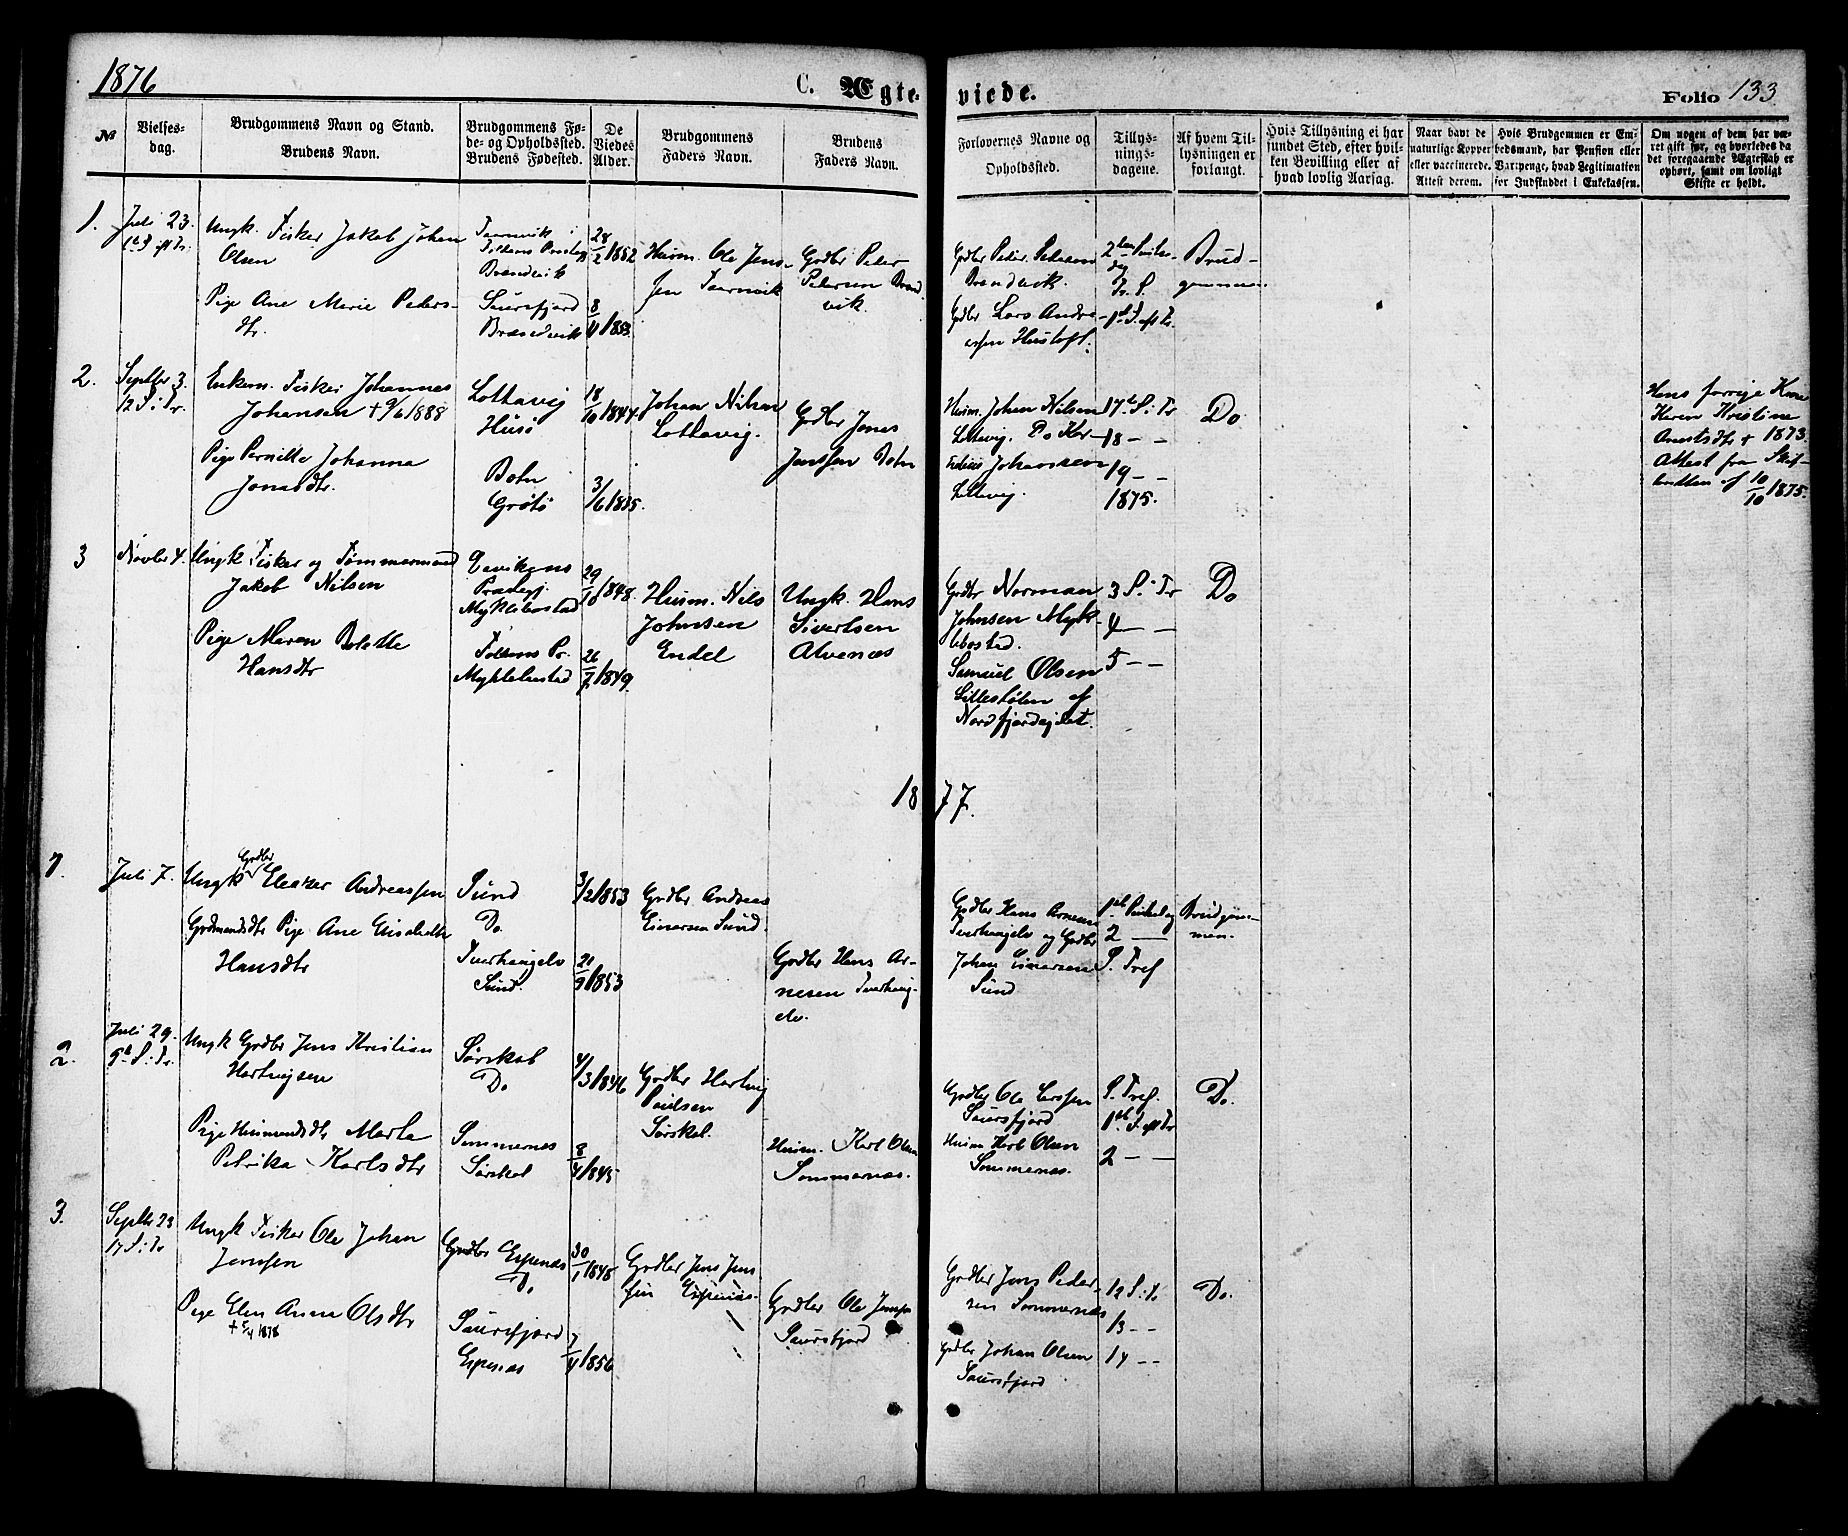 1876
C. Ægte-
viede.
Folio 133
№
Vielses-
dag.
Brudgommens Navn og Stand.
Brudens Navn.
Brudgommens Fø-
de- og Opholdssted.
Brudens Fødested.
De
Viedes
Alder.
Brudgommens
Faders Navn.
Brudens
Faders Navn.
Forlovernes Navne og
Opholdssted.
Tillys-
nings-
dagene.
Af hvem Til-
lysningen er
forlangt.
Hvis Tillysning ei har
fundet Sted, efter hvil-
ken Bevilling eller af
hvad lovlig Aarsag.
Naar havt de
naturlige Kopper
eller vaccinerede.
Attest derom.
Hvis Brudgommen er Em-
bedsmand, har Pension eller
Vartpenge, hvad Legitimation
for Indskuddet i Enkekassen.
Om nogen af dem har væ-
ret gift før, og hvorledes da
det foregaaende Ægteskab er
ophørt, samt om lovligt
Skifte er holdt.
1.
Juli 23.
Ungk. Fisker Jakob Johan
Olsen
Pige Ane Marie Peders-
dtr.
Taarnvik
Foldens Præstegj
Brandvik
Saursfjord
Brandvik
28/2 1852
8/4 1853
Huism. Ole Jens-
sen Taarnvik
Grdbr Peder
Petersen Brand
vik.
Grdbr Peder Petersen
Brandvik.
Grdbr Lars Andre-
assen Hustoft.
2den Pintse-
dag
Tr. S.
1ste S. eft Tr.
Brud-
gommen.
2.
Septbr 3.
12 S. i Tr.
Enkem. Fisker Johannes
Johansen + 9/6 1888
Pige Pernille Johanna
Jonasdtr.
Lottavig
Husö
Botn
Grötö
18/10 1844.
3/6 1835
Johan Nilsen
Lottavig.
Grdbr Jonas
Jenssen Botn
Huism. Johan Nilsen
Lottavig. Do Kor-
nelius Johanssen
Lottavig.
17de S. i Tr
18 - -
19 - -
1875.
Do
Hans forrige Kone
Karen Kristine
Arntsdtr + 1873.
Attest fra Skif-
teretten af 10/10 1875.
3
Novbr 4.
Ungk. Fisker og Tømmermand
Jakob Nilsen
Pige Maren Bolette
Hansdtr
Evikens
Præstegj.
Myklebostad
Foldens Pr.
Myklebostad
29/10 1848.
26/7 1849.
Huism. Nils
Johnsen
Endal
Ungk. Hans
Sivertsen
Alvenæs
Grdbr Norman
Johnsen Myk-
lebostad.
Samuel Olsen
Lillestölen af
Nordfjordeidet.
3 S. i Tr
4 - -
5 - -
Do
1877.
1.
Juli 7.
Ungk Grdbr Eleaser Andreassen
Grdmandsdtr Pige Ane Elisabeth
Hansdtr
Sund
Do
Tverhangelv
Sund.
3/2 1853
21/9 1853
Grdbr Andreas
Einersen Sund.
Grdbr Hans Ar-
nesen Tverhang-
elv.
Grdbr Hans Arnesen
Tverhangelv og Grdbr
Johan Einersen
Sund
1ste Pintsedag
2 -
S. Tref
Brudgom-
men.
2.
Juli 29.
9de S. i Tr.
Ungk Grdbr Jens Kristian
Hartvigsen
Pige Huismandsdtr Marta
Petrika Karlsdtr
Sörskot
Do
Sommernes
Sörskot
4/3 1846
8/4 1845
Grdbr Hartvig
Paulsen
Sörskot.
Huism. Karl Olsen
Sommernæs.
Grdbr Ole Larssen
Saursfjord
Huism Karl Olsen
Sommernæs.
S. Tref.
1ste S. eft Tr
2 - -
Do.
3.
Septbr 23
17 S. i Tr
Ungk Fisker Ole Johan
Jenssen
Pige Elen Anna Olsdtr
Grdbr Espenæs
Do
Saursfjord
Espenæs
30/1 1848
7/4 1856
Grdbr Jens Jens
sen Espenæs.
Grdbr Ole Jenssen
Saursfjord
Grdbr Jens Peder-
sen Sommernæs
Grdbr Johan Olsen
Saursfjord
12 S. i Tr
13 - -
14 - -
Do.